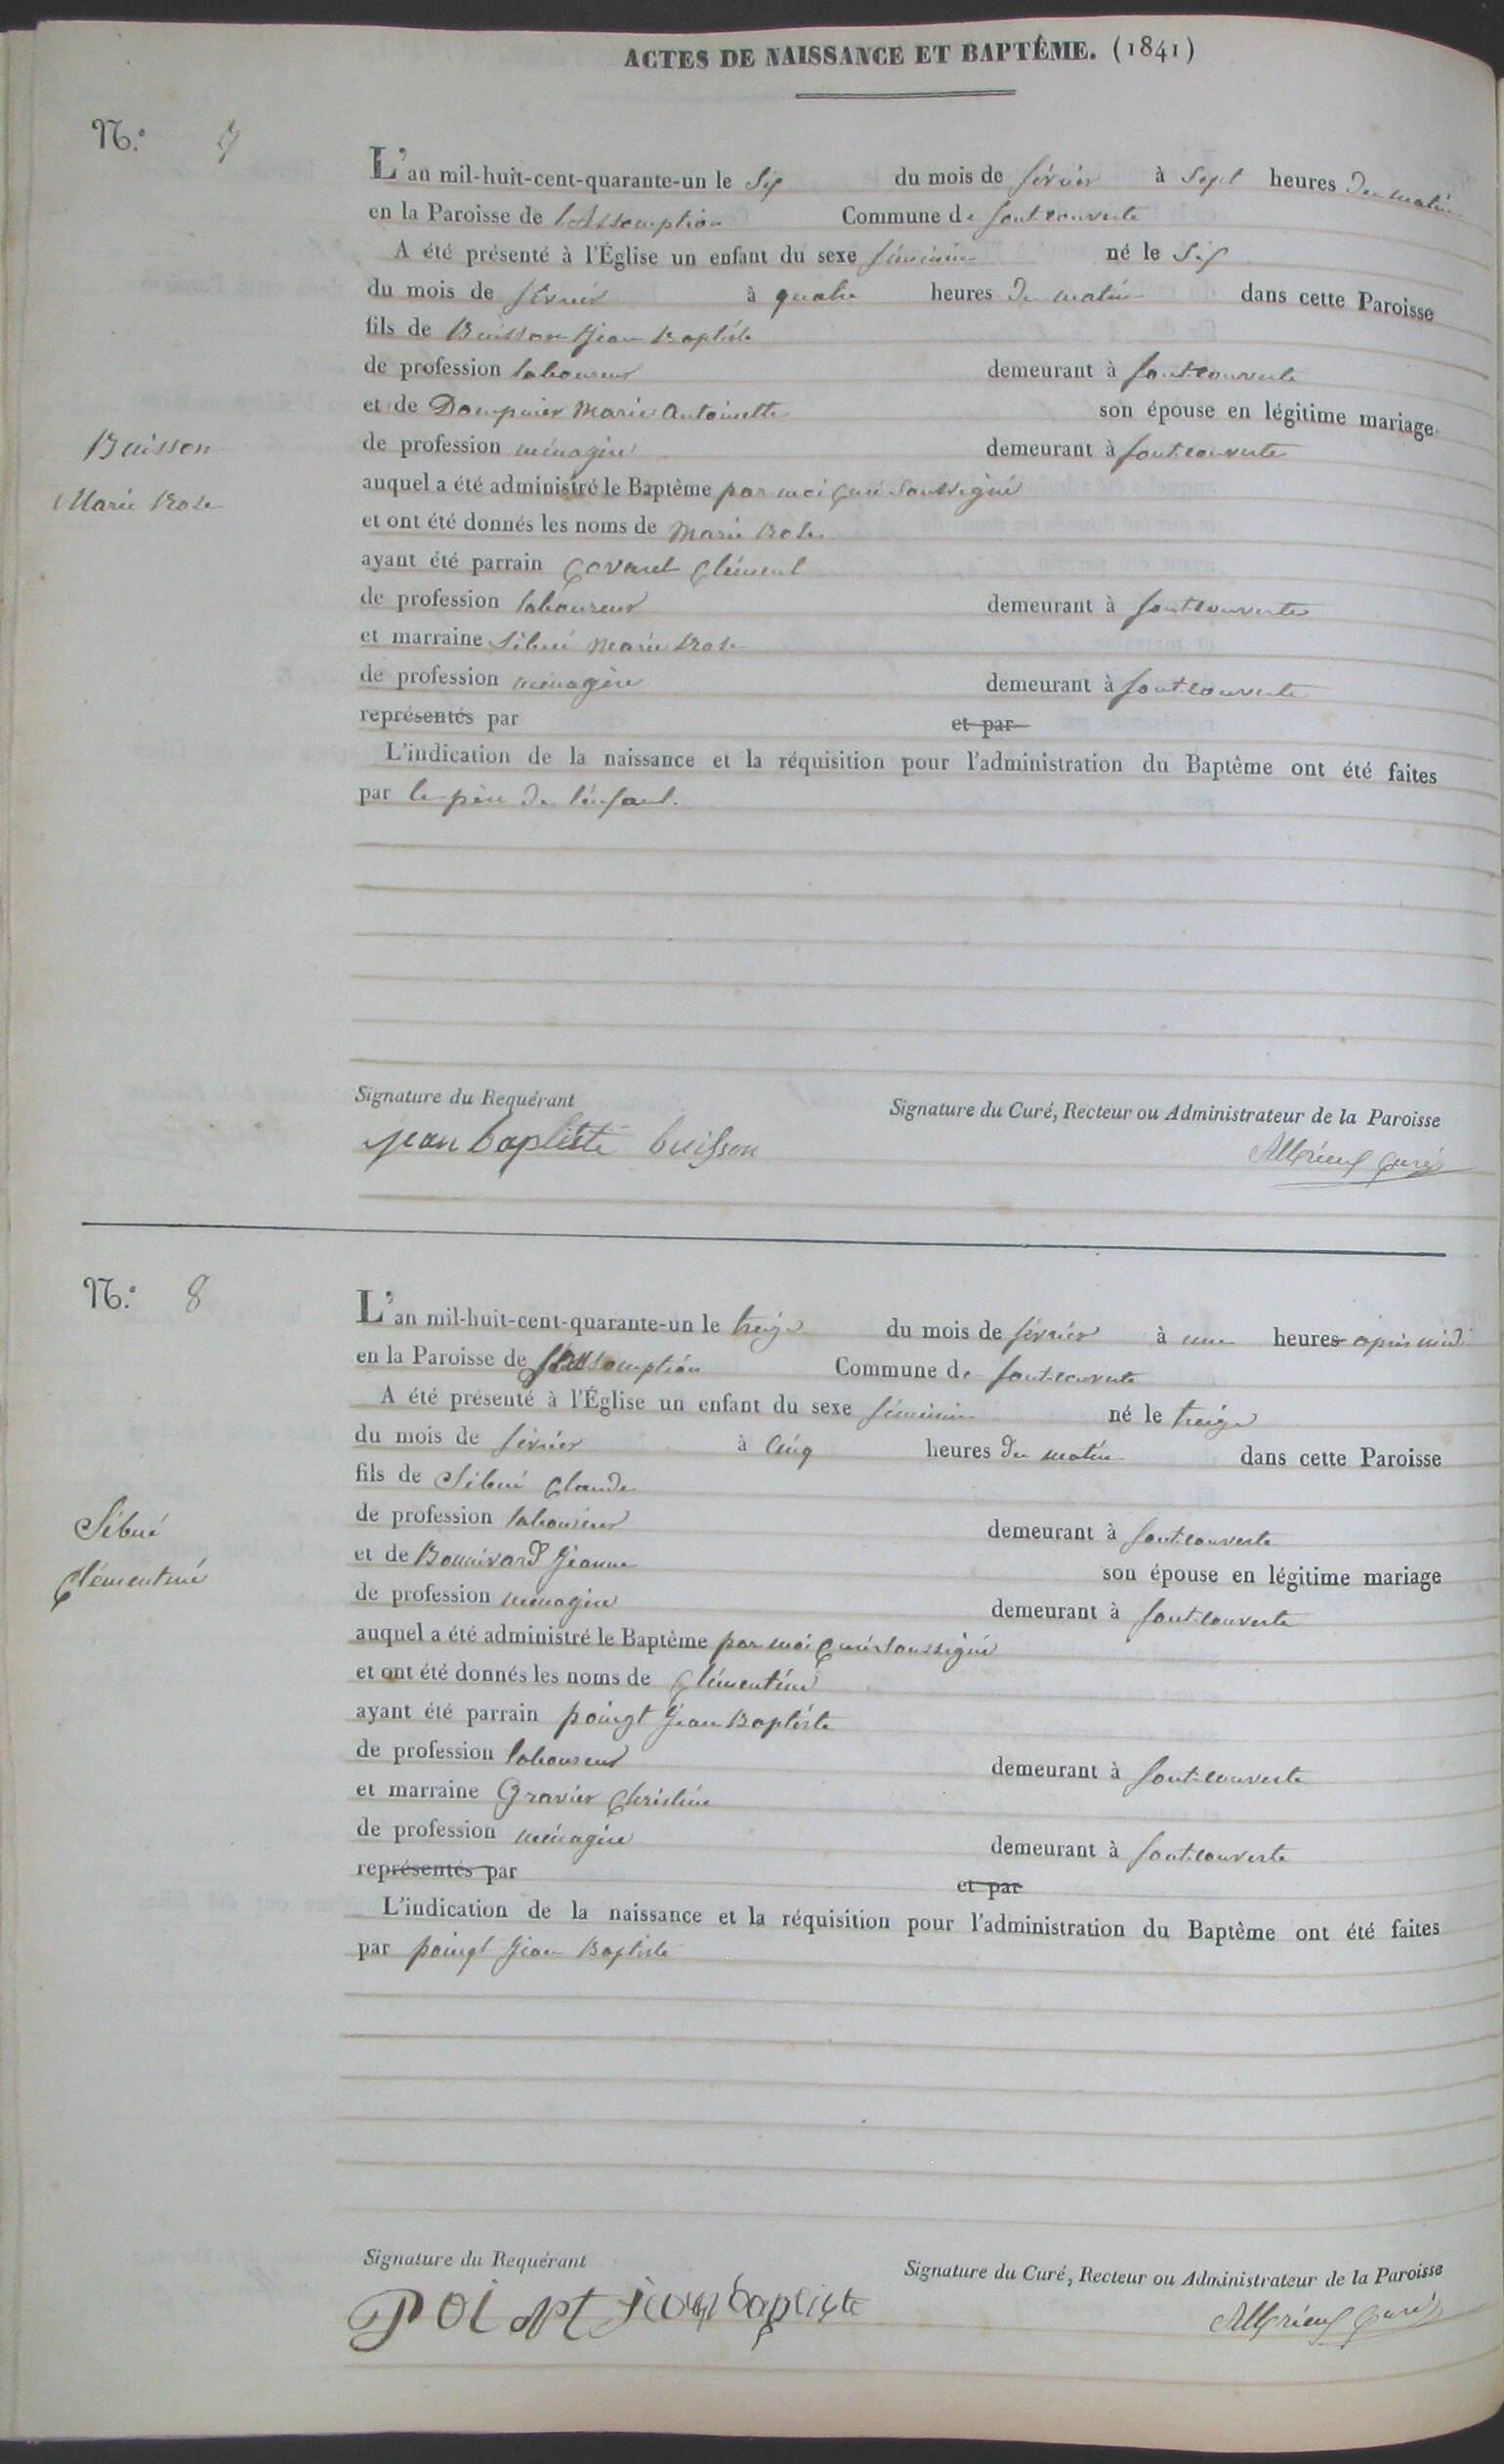 ACTES DE NAISSANCE ET BAPTÊME. (1841)
N.º 7
L'an mil-huit-cent-quarante-un le Six du mois de février à Sept heures du matin
en la Paroisse de l'Assomption Commune de fontcouverte
A été présenté à l'Église un enfant du sexe féminin né le Six
du mois de février à quatre heures du matin dans cette Paroisse
fils de Buisson Jean Baptiste
de profession laboureur demeurant à fontcouverte
et de Dompnier Marie Antoinette son épouse en légitime mariage
Buisson
de profession ménagère demeurant à fontcouverte
Marie Rose
auquel a été administré le Baptême par moi Curé Soussigné
et ont été donnés les noms de Marie Rose
ayant été parrain Covarel Clément
de profession laboureur demeurant à fontcouverte
et marraine Sibué Marie Rose
de profession ménagère demeurant à fontcouverte
représentés par et par
L'indication de la naissance et la réquisition pour l'administration du Baptême ont été faites
par le père de l'enfant.
Signature du Requérant Signature du Curé, Recteur ou Administrateur de la Paroisse
jean baptiste buisson Albrieux Curé
N.º 8
L'an mil-huit-cent-quarante-un le treize du mois de février à une heures après midi
en la Paroisse de l'Assomption Commune de fontcouverte
A été présenté à l'Église un enfant du sexe féminin né le treize
du mois de février à Cinq heures du matin dans cette Paroisse
fils de Sibué Claude
de profession laboureur demeurant à fontcouverte
Sibué
et de Bonnivard Jeanne son épouse en légitime mariage
Clémentine
de profession ménagère demeurant à fontcouverte
auquel a été administré le Baptême par moi Curé soussigné
et ont été donnés les noms de Clémentine
ayant été parrain poingt Jean Baptiste
de profession laboureur demeurant à fontcouverte
et marraine Gravier Christine
de profession ménagère demeurant à fontcouverte
représentés par et par
L'indication de la naissance et la réquisition pour l'administration du Baptême ont été faites
par poingt Jean Baptiste
Signature du Requérant Signature du Curé, Recteur ou Administrateur de la Paroisse
jean baptiste Albrieux Curé